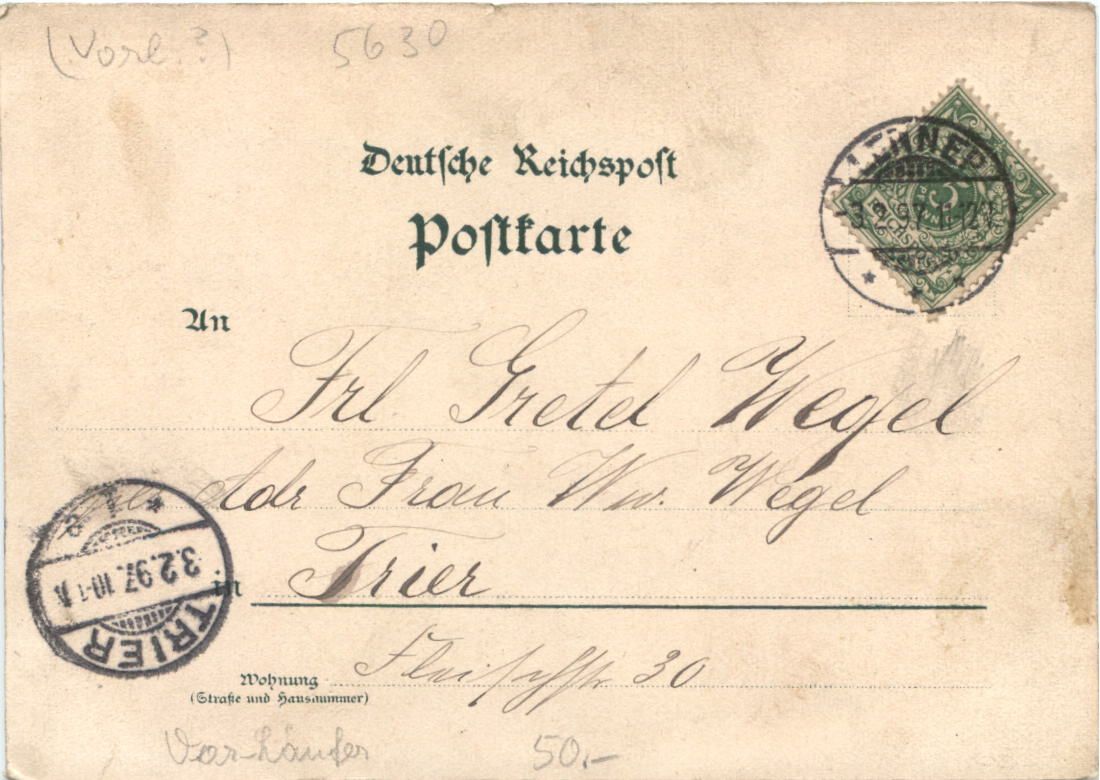 (Vorl.?) 5630
Deutsche Reichspost
Postkarte
LEHNER
3.2.97.11-12V
An
Frl. Gretel Wegel
Adr Frau Ww. Wegel
in Trier
3.2.97.10-1
TRIER
Wohnung Fleischstr 30
(Straße und Hausnummer)
Vorläufer 50,-